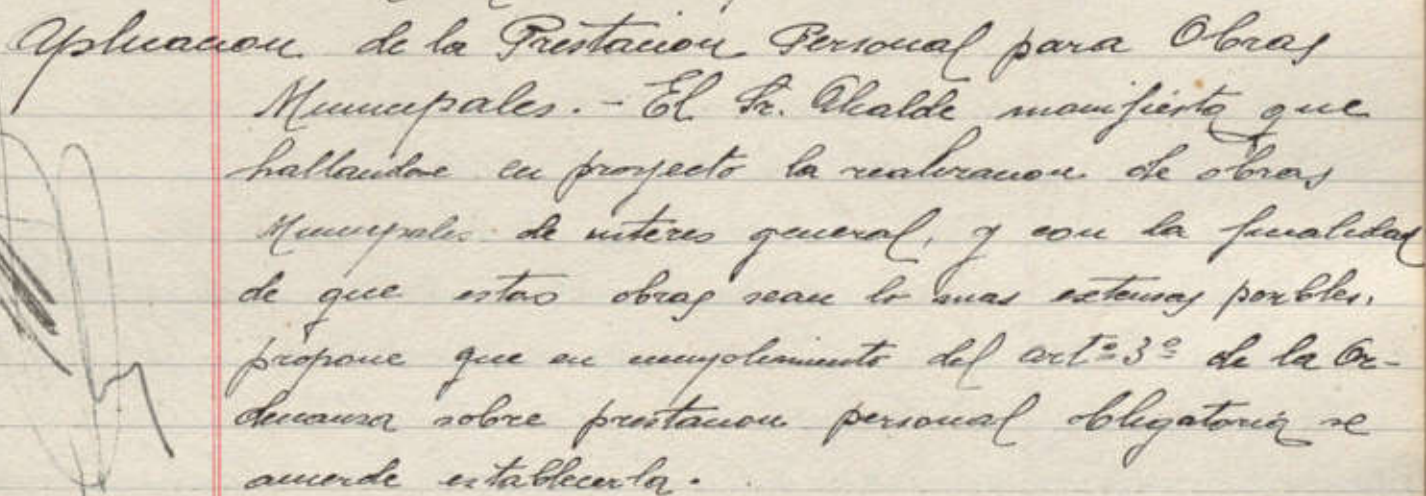 Aplicacion de la Prestacion Personal para Obras
Municipales. - El Sr. Alcalde manifiesta que
hallandose en proyecto la realizacion de obras
Municipales de interes general, y con la finalidad
de que estas obras sean lo mas extensas posibles,
propone que en cumplimiento del artº 3º de la Or-
denanza sobre prestacion personal obligatoria se
acuerde establecerla.